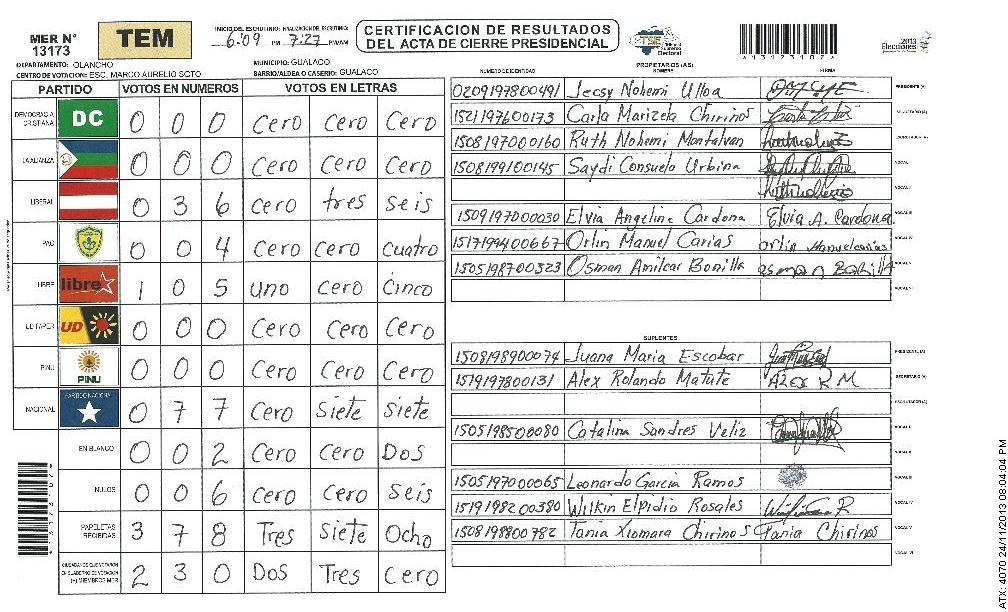 MER N° 13173
TEM
INICIO DEL ESCRUTINIO: FINALIZACION DEL ESCRUTINIO:
6:09 PM 7:27 PM/AM
CERTIFICACION DE RESULTADOS
DEL ACTA DE CIERRE PRESIDENCIAL
TSE Tribunal Supremo Electoral
*1317310?*
2013 Elecciones
DEPARTAMENTO: OLANCHO
MUNICIPIO: GUALACO
CENTRO DE VOTACION: ESC. MARCO AURELIO SOTO
BARRIO/ALDEA O CASERIO: GUALACO
PARTIDO VOTOS EN NUMEROS VOTOS EN LETRAS
DEMOCRACIA CRISTIANA DC 0 0 0 Cero Cero Cero
LA ALIANZA 0 0 0 Cero Cero Cero
LIBERAL 0 3 6 Cero tres Seis
PAC 0 0 4 Cero Cero Cuatro
LIBRE libre 1 0 5 Uno Cero Cinco
UD FAPER UD 0 0 0 Cero Cero Cero
PINU PINU 0 0 0 Cero Cero Cero
NACIONAL PARTIDO NACIONAL 0 7 7 Cero Siete Siete
EN BLANCO 0 0 2 Cero Cero Dos
NULOS 0 0 6 Cero Cero Seis
PAPELETAS RECIBIDAS 3 7 8 Tres Siete Ocho
CIUDADANOS QUE VOTARON EN CUADERNO DE VOTACION (+) MIEMBROS MER 2 3 0 Dos Tres Cero
PROPIETARIOS (AS)
NUMERO DE IDENTIDAD NOMBRE FIRMA
0209197800491 Jecsy Nohemi Ulloa PRESIDENTE (A)
1521197600173 Carla Marizela Chirinos SECRETARIO (A)
1508197000160 Ruth Nohemi Montalvan ESCRUTADOR (A)
1508199100145 Saydi Consuelo Urbina VOCAL I
VOCAL II
1509197000030 Elvia Angelina Cardona Elvia A. Cardona VOCAL III
1517199400667 Orlin Manuel Carias orlin Manuel carias VOCAL IV
1505198700323 Osman Amilcar Bonilla osman Bonilla VOCAL V
VOCAL VI
SUPLENTES
1508198900074 Juana Maria Escobar PRESIDENTE (A)
1519197800131 Alex Rolando Matute Alex R M SECRETARIO (A)
ESCRUTADOR (A)
1505198500080 Catalina Sandres Veliz VOCAL I
VOCAL II
1505197000065 Leonardo Garcia Ramos VOCAL III
1519198200380 Wilkin Elpidio Rosales VOCAL IV
1508198800782 Tania Xiomara Chirinos Tania Chirinos VOCAL V
VOCAL VI
ATX: 4070 24/11/2013 08:04:04 PM